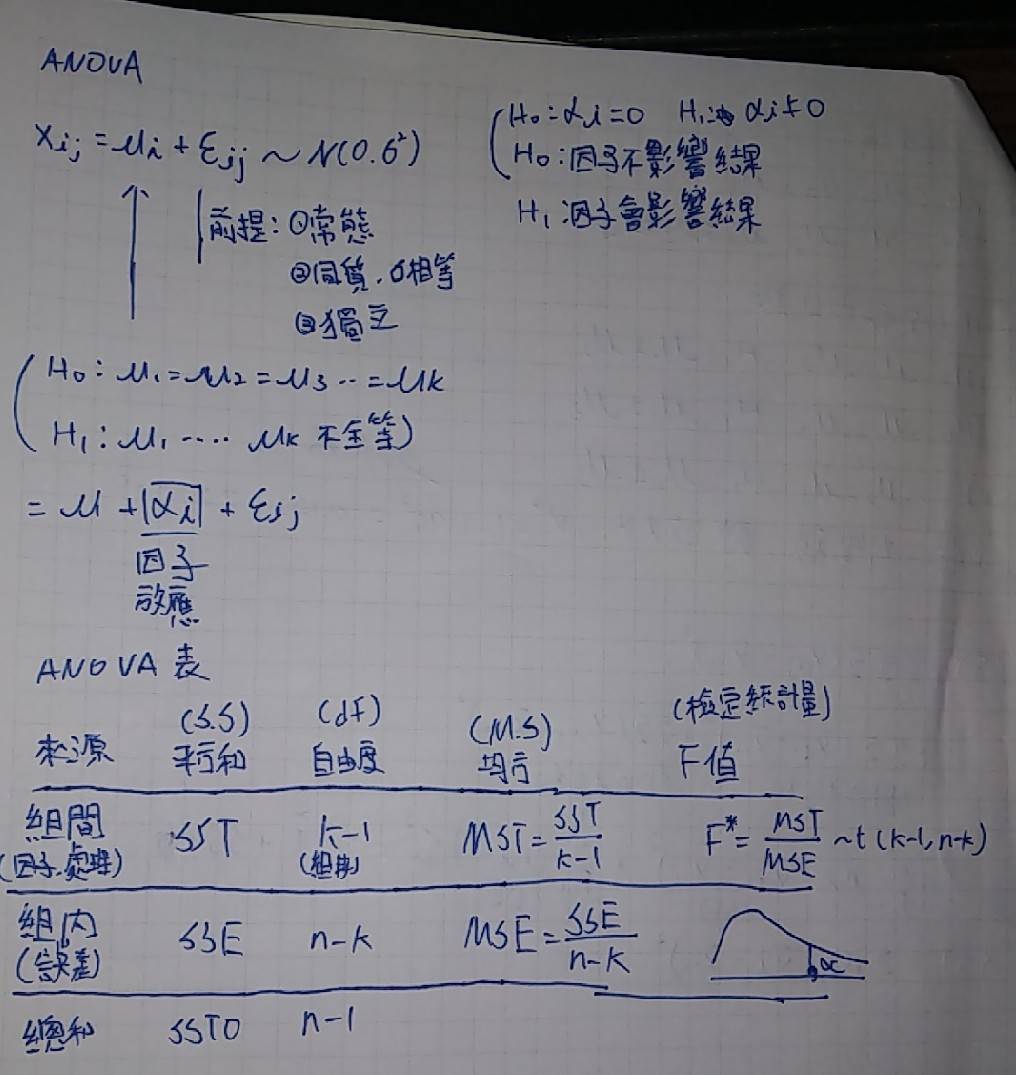 ANOVA
Xij = μi + εij ~ N(0.6²)
前提: ①常態
②同質、σ相等
③獨立
H0: αi=0 H1: αi≠0
H0: 因子不影響結果
H1: 因子會影響結果
H0: μ1=μ2=μ3 ‥=μk
H1: μ1 ‥‥ μk 不全等
= μ + αi + εij
因子
效應
ANOVA 表
(S.S) (df) (M.S) (檢定統計量)
來源 平方和 自由度 均方 F值
組間 SST k-1 MST = SST/k-1 F* = MST/MSE ~t (k-1, n-k)
(因子.處理) (組數)
組內 SSE n-k MSE = SSE/n-k
(誤差) α
總和 SSTO n-1